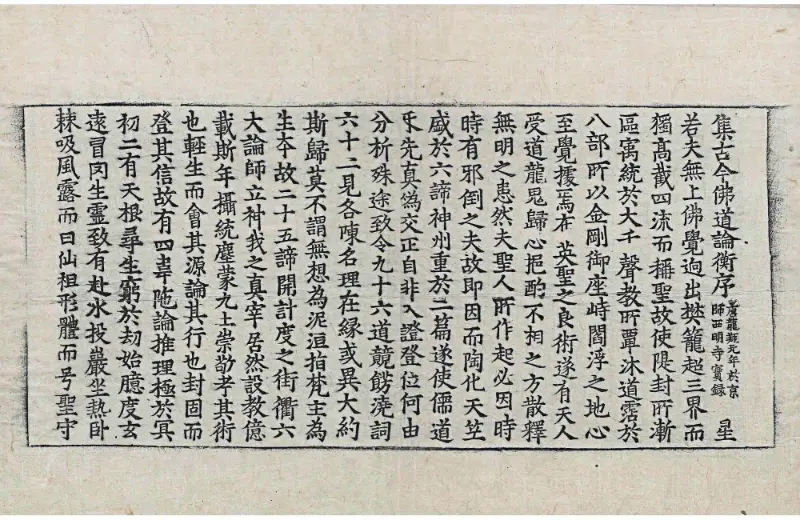 集古今佛道論衡序唐龍朔元年於京師西明寺實錄 星
若夫無上佛覺逈出樊籠超三界而
獨高截四流而稱聖故使隄封所漸
區㝢統於大千聲教所覃沐道霑於
八部所以金剛御座峙閻浮之地心
至覺據焉布英聖之良術遂有天人
受道龍鬼歸心挹酌不相之方散釋
無明之患然夫聖人所作起必因時
時有邪倒之夫故即因而陶化天竺
盛於六諦神州重於二篇遂使儒道
㸦先真僞交正自非入證登位何由
分析殊途致令九十六道競餝澆詞
六十二見各陳名理在緣或異大約
斯歸莫不謂無想為泥洹指梵主為
生本故二十五諦開計度之街衢六
大論師立神我之真宰居然設教億
載斯年攝統塵蒙九土崇敬考其術
也輕生而會其源論其行也封固而
登其信故有四韋陁論推理極於冥
初二有天根尋生窮於劫始臆度玄
遠冒罔生靈致有赴水投巖坐熱卧
棘吸風露而曰仙袒形體而号聖守